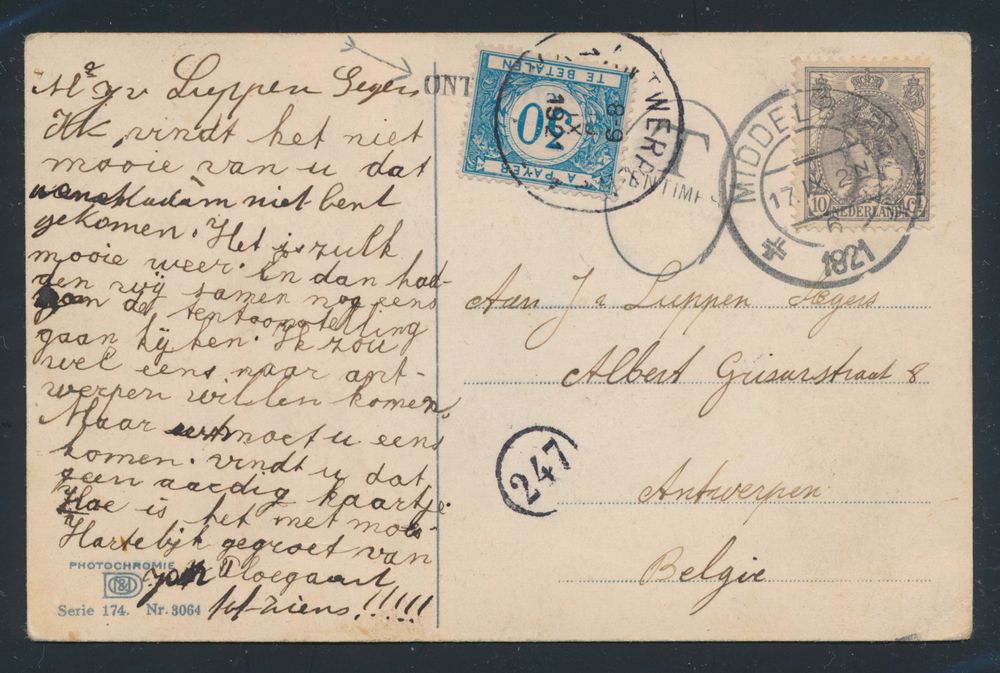 Me J v Luppen Segers
Ik vindt het niet
mooie van u dat
Madam niet bent
gekomen. Het is zulk
mooie weer. En dan had-
den wij samen nog eens
de tentoonstelling
gaan kijken. Ik zou
wel eens naar ant-
werpen willen komen.
Maar moet u eens
komen. vindt u dat
geen aardig kaartje
Hoe is het met
Hartelijk gegroet van
Ploegaart
tot ziens!!!!!
PHOTOCHROMIE
Serie 174. Nr. 3064
ONT
TE BETALEN
50
A PAYER
ANTWERPEN
8-9
IX
1921
T
CENTIMES
MIDDELBURG
17.IX
1821
10 Ct
NEDERLAND
Aan J a Luppen Segers
Albert Grisarstraat 8
Antwerpen
Belgie
247